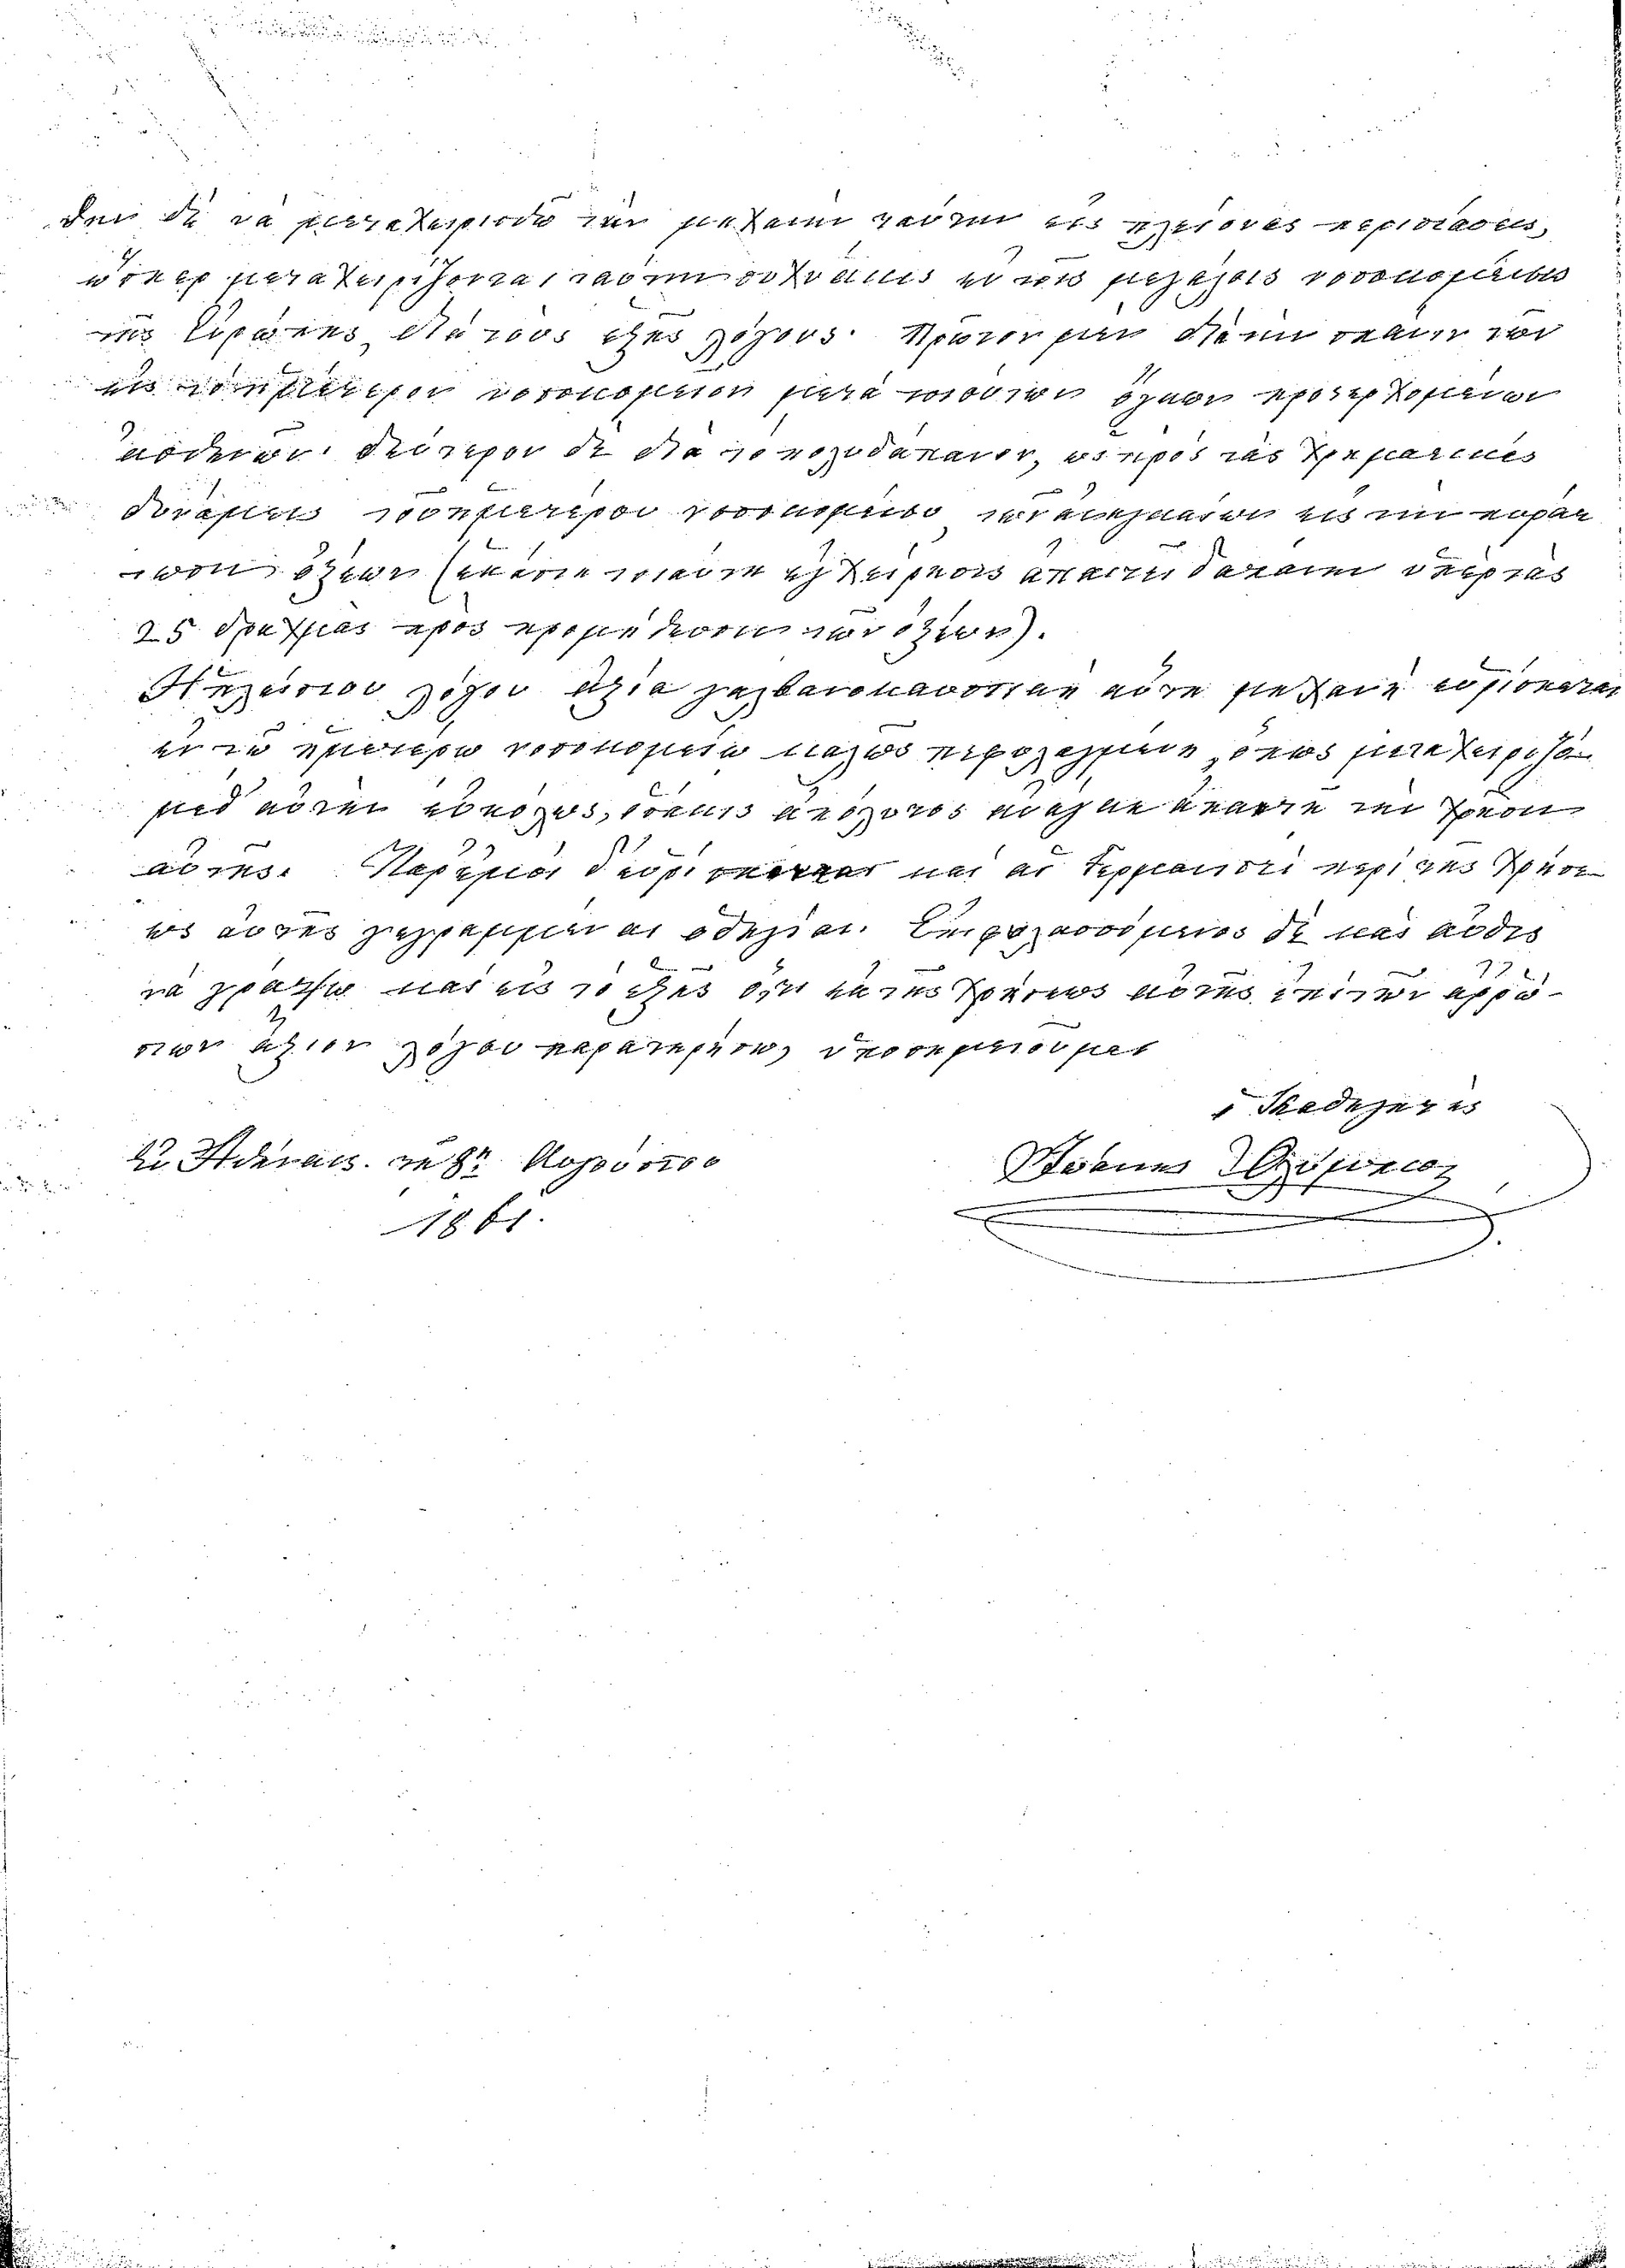 δεν δὲ νὰ μεταχειρισθῶ τὴν μηχανὴν ταύτην εἰς πλείονας περιστάσεις,
ὥσπερ μεταχειρίζονται ταύτην συχνάκις ἐν τοῖς μεγάλοις νοσοκομείοις
τῆς Εὐρώπης, διὰ τοὺς ἑξῆς λόγους. Πρῶτον μὲν διὰ τὴν σπάνιν τῶν
εἰς τὸ ἡμέτερον νοσοκομεῖον μετὰ τοιούτων ὄγκων προσερχομένων
ἀσθενῶν. δεύτερον δὲ διὰ τὸ πολυδάπανον, ὡς πρὸς τὰς χρηματικὰς
δυνάμεις τοῦ ἡμετέρου νοσοκομείου, τῶν εἰς τὴν
ὀξέων (ἑκάστη τοιαύτη ἐγχείρησις ἀπαιτεῖ δαπάνην ὑπὲρ τὰς
25 δραχμὰς πρὸς προμήθευσιν τῶν ὀξέων).
Πλείστου λόγου ἀξία γαλβανοκαυστικὴ αὕτη μηχανὴ εὑρίσκεται
ἐν τῷ ἡμετέρῳ νοσοκομείῳ καλῶς πεφυλαγμένη, ὅπως μεταχειρίζω-
μαι αὐτὴν εὐκόλως, ὁσάκις ἀπαιτῇ τὴν χρῆσιν
αὐτῆς. Παρ' ἐμοὶ δὲ εὑρίσκονται καὶ αἱ Γερμανιστὶ περὶ τῆς χρήσε-
ως αὐτῆς γεγραμμέναι ὁδηγίαι. Ἐπιφυλασσόμενος δὲ καὶ αὖθις
νὰ γράψω καὶ εἰς τὸ ἑξῆς ὅ,τι ἐκ τῆς χρήσεως αὐτῆς ἐπὶ τῶν ἀρρώ-
στων ἄξιον λόγου παρατηρήσω, ὑποσημειοῦμαι
ὁ Καθηγητὴς
Ἐν Ἀθήναις. τῇ 8ῃ Αὐγούστου
1861.